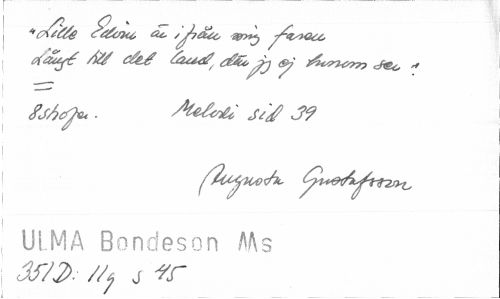 "Lille Edvin är ifrån mig faren
Långt till det land, där jg ej honom ser".
=
8 strofer. Melodi sid 39
Augusta Gustafsson
ULMA Bondeson Ms
351D: 11q s 45